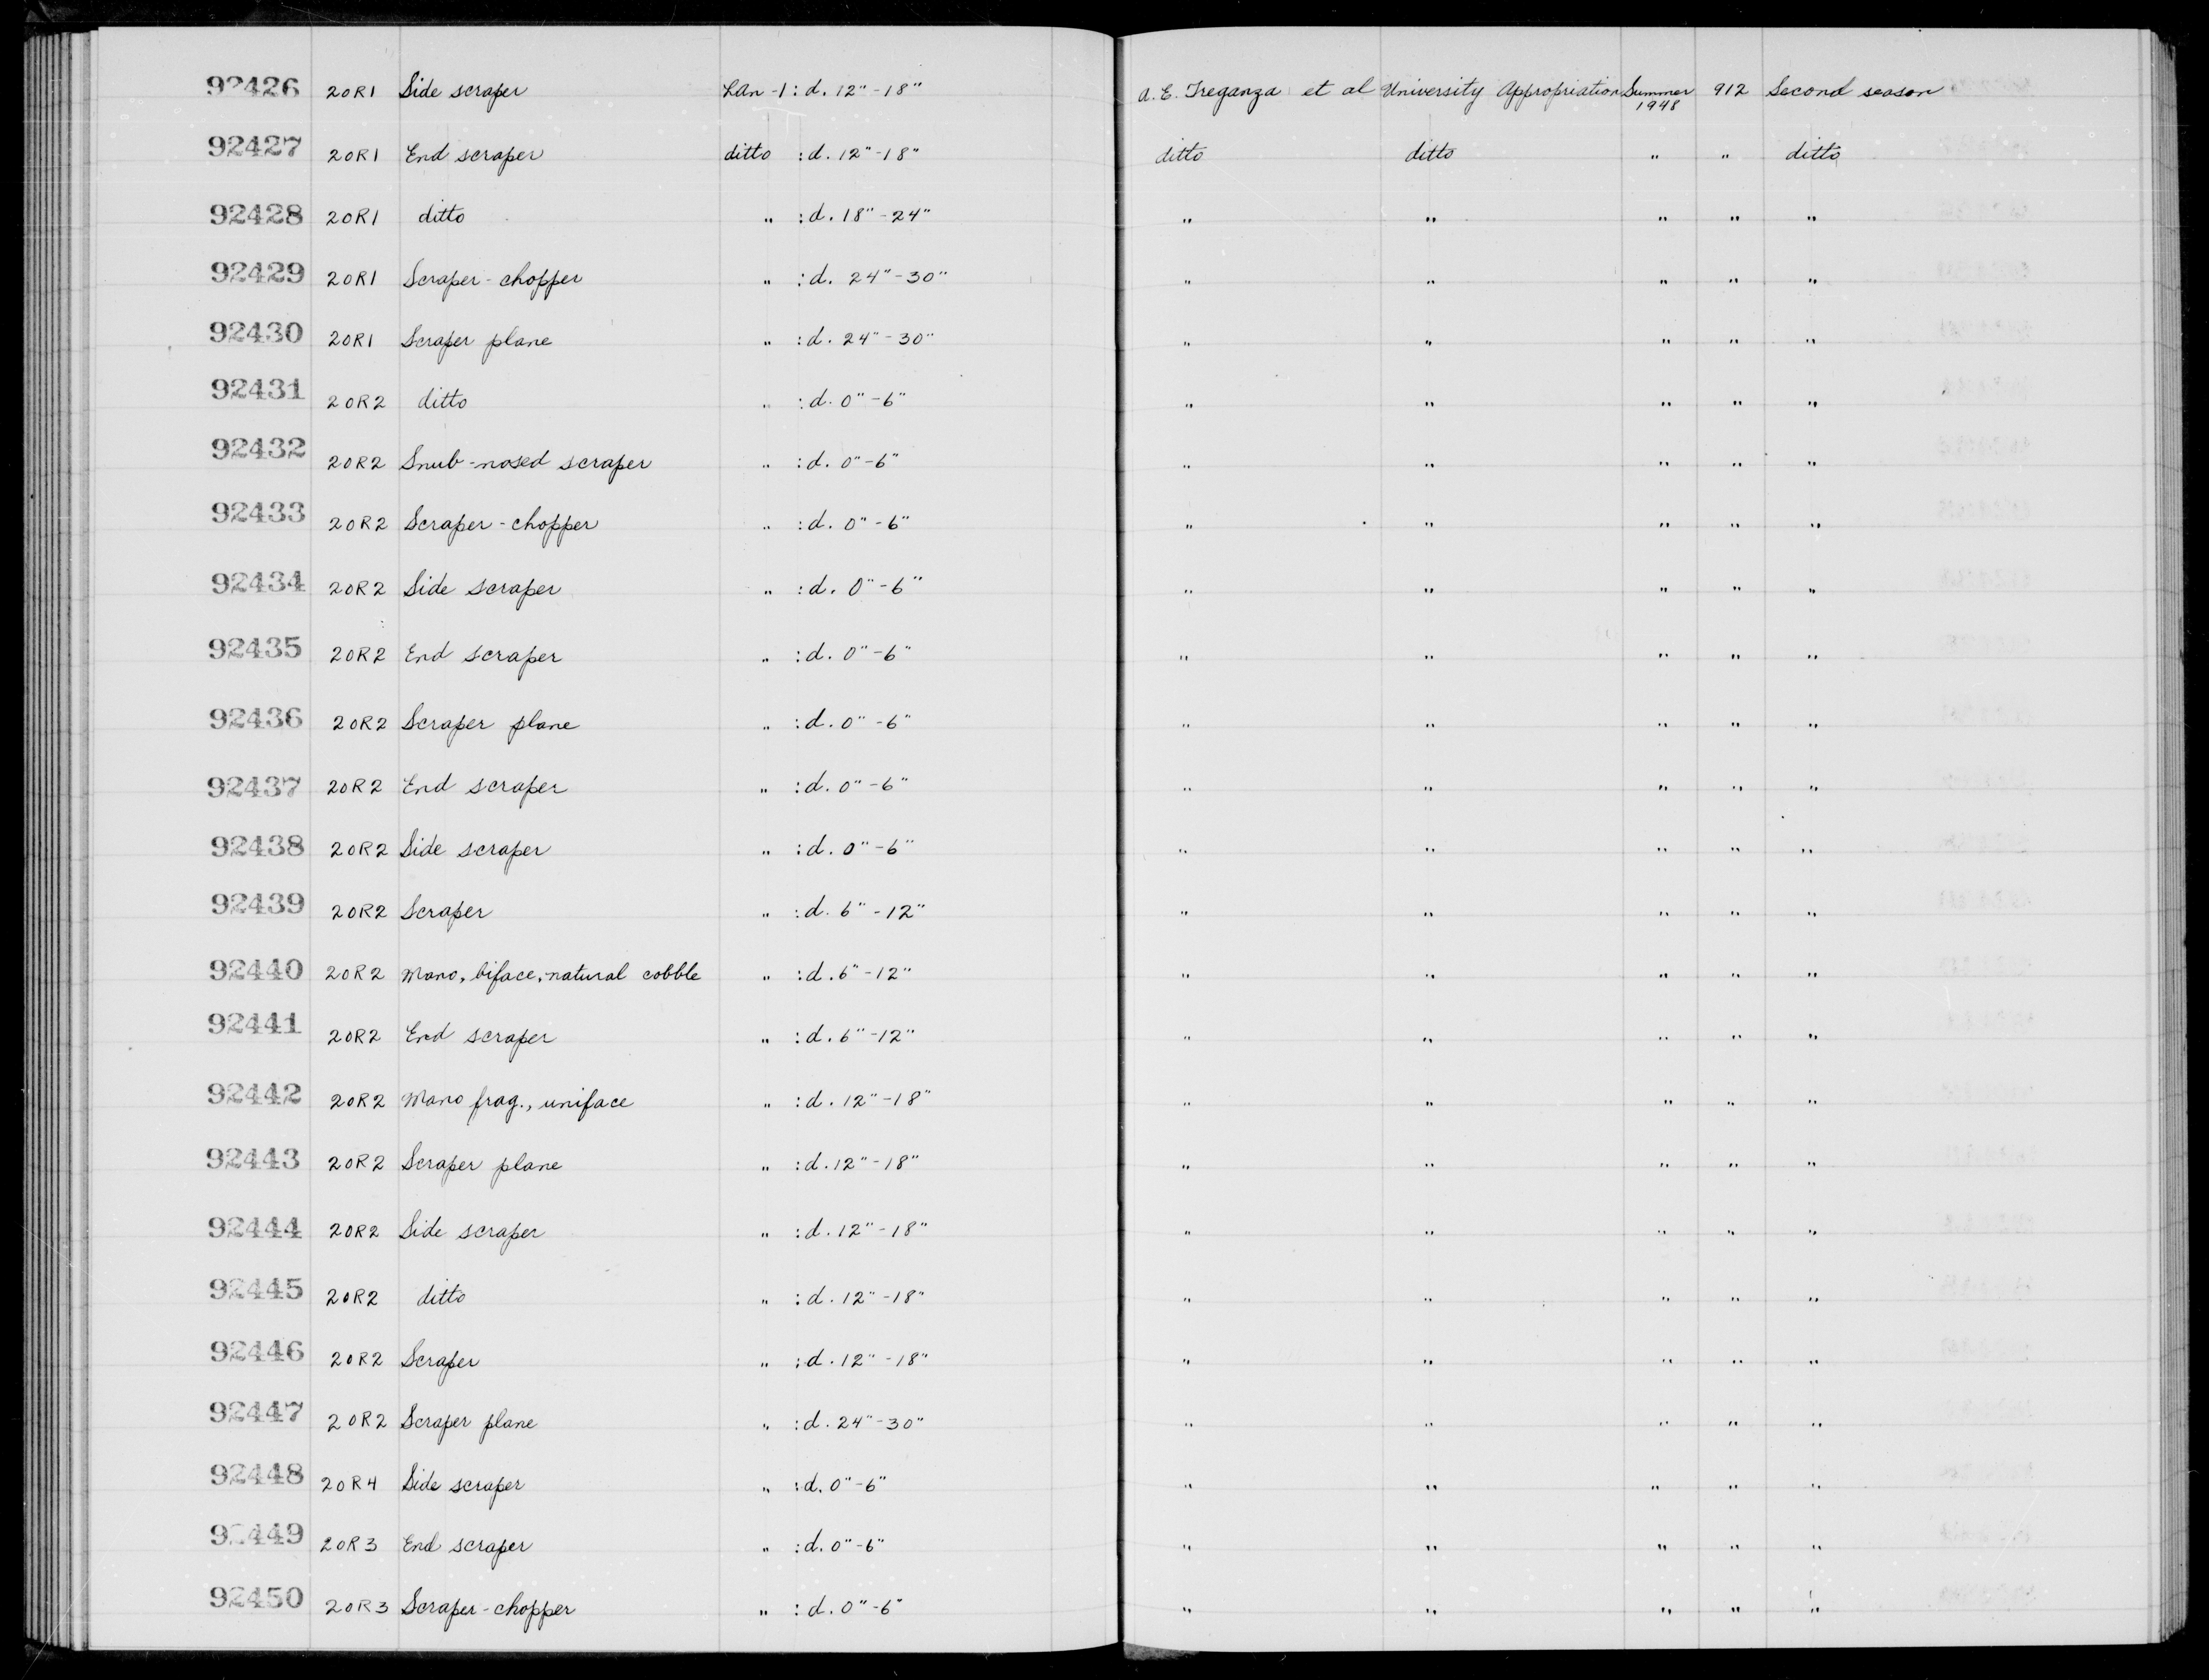 92426 20R1 Side scraper LAn-1 : d. 12"-18" A. E. Treganza et al University Appropriation Summer 1948 912 Second season
92427 20R1 End scraper ditto : d. 12"-18" ditto ditto " " ditto
92428 20R1 ditto " : d. 18"-24" " " " " "
92429 20R1 Scraper-chopper " : d. 24"-30" " " " " "
92430 20R1 Scraper plane " : d. 24"-30" " " " " "
92431 20R2 ditto " : d. 0"-6" " " " " "
92432 20R2 Snub-nosed scraper " : d. 0"-6" " " " " "
92433 20R2 Scraper-chopper " : d. 0"-6" " " " " "
92434 20R2 Side scraper " : d. 0"-6" " " " " "
92435 20R2 End scraper " : d. 0"-6" " " " " "
92436 20R2 Scraper plane " : d. 0"-6" " " " " "
92437 20R2 End scraper " : d. 0"-6" " " " " "
92438 20R2 Side scraper " : d. 0"-6" " " " " "
92439 20R2 Scraper " : d. 6"-12" " " " " "
92440 20R2 Mano, biface, natural cobble " : d. 6"-12" " " " " "
92441 20R2 End scraper " : d. 6"-12" " " " " "
92442 20R2 Mano frag., uniface " : d. 12"-18" " " " " "
92443 20R2 Scraper plane " : d. 12"-18" " " " " "
92444 20R2 Side scraper " : d. 12"-18" " " " " "
92445 20R2 ditto " : d. 12"-18" " " " " "
92446 20R2 Scraper " : d. 12"-18" " " " " "
92447 20R2 Scraper plane " : d. 24"-30" " " " " "
92448 20R4 Side scraper " : d. 0"-6" " " " " "
92449 20R3 End scraper " : d. 0"-6" " " " " "
92450 20R3 Scraper-chopper " : d. 0"-6" " " " " "